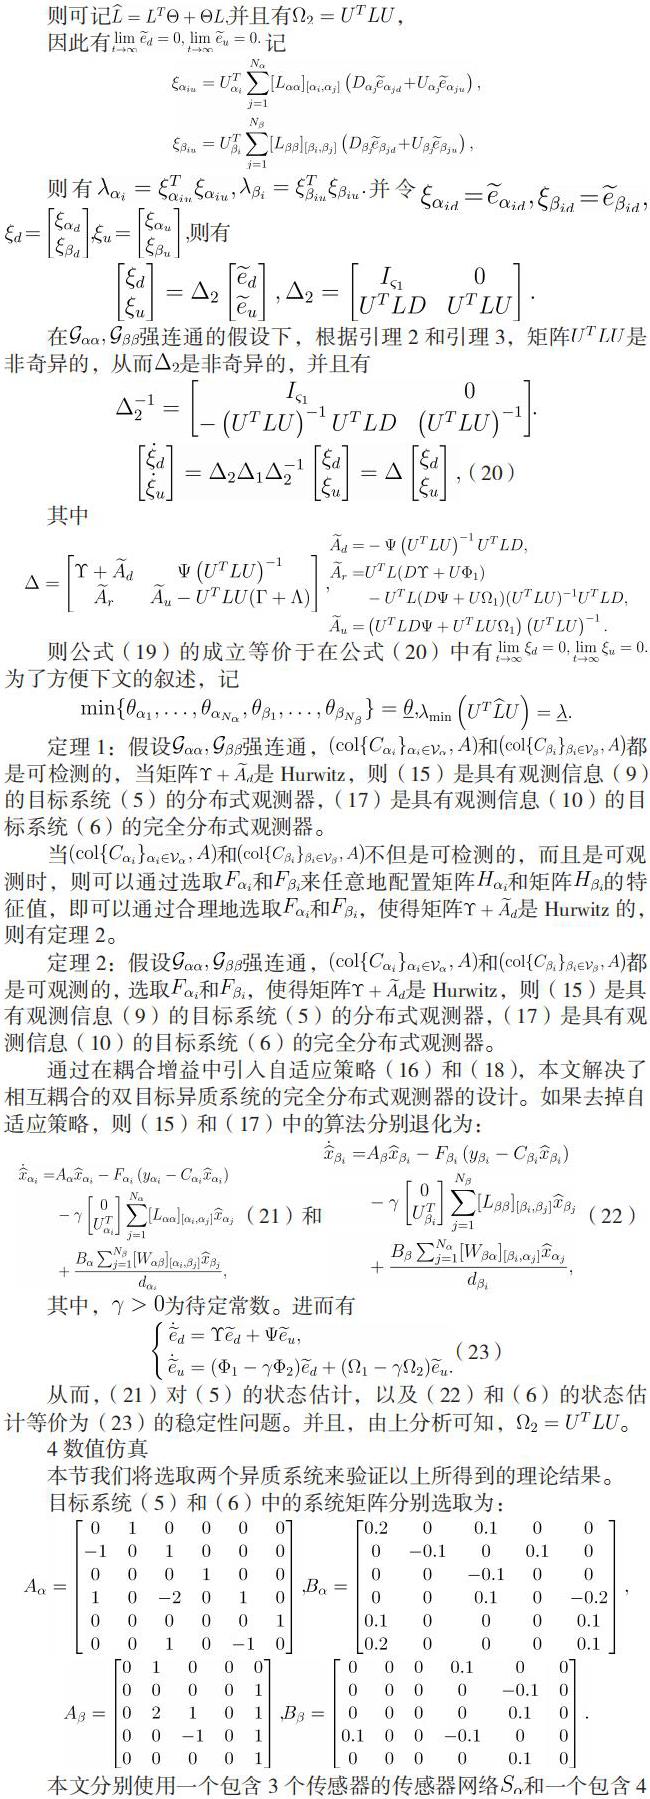 则可记L̂ = LᵀΘ + ΘL,并且有Ω₂ = UᵀLU，
因此有lim_{t→∞} ẽ_d = 0, lim_{t→∞} ẽ_u = 0. 记
ξ_{α_{iu}} = U_{α_i}^T ∑_{j=1}^{N_α} [L_{αα}]_{[α_i,α_j]} (D_{α_j} ẽ_{α_{jd}} + U_{α_j} ẽ_{α_{ju}}) ,
ξ_{β_{iu}} = U_{β_i}^T ∑_{j=1}^{N_β} [L_{ββ}]_{[β_i,β_j]} (D_{β_j} ẽ_{β_{jd}} + U_{β_j} ẽ_{β_{ju}}) ,
则有 λ_{α_i} = ξ_{α_{iu}}^T ξ_{α_{iu}}, λ_{β_i} = ξ_{β_{iu}}^T ξ_{β_{iu}}. 并令 ξ_{α_{id}} = ẽ_{α_{id}}, ξ_{β_{id}} = ẽ_{β_{id}},
ξ_d = [ξ_{α_d}; ξ_{β_d}], ξ_u = [ξ_{α_u}; ξ_{β_u}] ,则有
[ξ_d; ξ_u] = Δ₂ [ẽ_d; ẽ_u] , Δ₂ = [I_{ς₁} 0; UᵀLD UᵀLU] .
在𝒢_{αα}, 𝒢_{ββ}强连通的假设下，根据引理 2 和引理 3，矩阵UᵀLU是
非奇异的，从而Δ₂是非奇异的，并且有
Δ₂^{-1} = [I_{ς₁} 0; −(UᵀLU)^{-1} UᵀLD (UᵀLU)^{-1}].
[ξ̇_d; ξ̇_u] = Δ₂Δ₁Δ₂^{-1} [ξ_d; ξ_u] = Δ [ξ_d; ξ_u] ,（20）
其中
Δ = [Υ + Ã_d Ψ(UᵀLU)^{-1}; Ã_r Ã_u − UᵀLU(Γ + Λ)] ,
Ã_d = − Ψ (UᵀLU)^{-1} UᵀLD,
Ã_r = UᵀL(DΥ + UΦ₁)
− UᵀL(DΨ + UΩ₁)(UᵀLU)^{-1}UᵀLD,
Ã_u = (UᵀLDΨ + UᵀLUΩ₁) (UᵀLU)^{-1} .
则公式（19）的成立等价于在公式（20）中有lim_{t→∞} ξ_d = 0, lim_{t→∞} ξ_u = 0.
为了方便下文的叙述，记
min{θ_{α₁}, . . . , θ_{α_{N_α}}, θ_{β₁}, . . . , θ_{β_{N_β}}} = θ̲, λ_min (UᵀL̂U) = λ̲.
定理 1：假设𝒢_{αα}, 𝒢_{ββ}强连通，(col{C_{α_i}}_{α_i∈𝒱_α}, A)和(col{C_{β_i}}_{β_i∈𝒱_β}, A)都
是可检测的，当矩阵Υ + Ã_d是 Hurwitz，则（15）是具有观测信息（9）
的目标系统（5）的分布式观测器，（17）是具有观测信息（10）的目
标系统（6）的完全分布式观测器。
当(col{C_{α_i}}_{α_i∈𝒱_α}, A)和(col{C_{β_i}}_{β_i∈𝒱_β}, A)不但是可检测的，而且是可观
测时，则可以通过选取F_{α_i}和F_{β_i}来任意地配置矩阵H_{α_i}和矩阵H_{β_i}的特
征值，即可以通过合理地选取F_{α_i}和F_{β_i}，使得矩阵Υ + Ã_d是 Hurwitz 的，
则有定理 2。
定理 2：假设𝒢_{αα}, 𝒢_{ββ}强连通，(col{C_{α_i}}_{α_i∈𝒱_α}, A)和(col{C_{β_i}}_{β_i∈𝒱_β}, A)都
是可观测的，选取F_{α_i}和F_{β_i}，使得矩阵Υ + Ã_d是 Hurwitz，则（15）是具
有观测信息（9）的目标系统（5）的分布式观测器，（17）是具有观
测信息（10）的目标系统（6）的完全分布式观测器。
通过在耦合增益中引入自适应策略（16）和（18），本文解决了
相互耦合的双目标异质系统的完全分布式观测器的设计。如果去掉自
适应策略，则（15）和（17）中的算法分别退化为：
x̂̇_{α_i} = A_α x̂_{α_i} − F_{α_i} (y_{α_i} − C_{α_i} x̂_{α_i})
− γ [0; U_{α_i}^T] ∑_{j=1}^{N_α} [L_{αα}]_{[α_i,α_j]} x̂_{α_j}（21）和
+ B_α ∑_{j=1}^{N_β} [W_{αβ}]_{[α_i,β_j]} x̂_{β_j} / d_{α_i} ,
x̂̇_{β_i} = A_β x̂_{β_i} − F_{β_i} (y_{β_i} − C_{β_i} x̂_{β_i})
− γ [0; U_{β_i}^T] ∑_{j=1}^{N_β} [L_{ββ}]_{[β_i,β_j]} x̂_{β_j}（22）
+ B_β ∑_{j=1}^{N_α} [W_{βα}]_{[β_i,α_j]} x̂_{α_j} / d_{β_i} ,
其中，γ > 0为待定常数。进而有
{ ẽ̇_d = Υẽ_d + Ψẽ_u,
ẽ̇_u = (Φ₁ − γΦ₂)ẽ_d + (Ω₁ − γΩ₂)ẽ_u.（23）
从而，（21）对（5）的状态估计，以及（22）和（6）的状态估
计等价为（23）的稳定性问题。并且，由上分析可知，Ω₂ = UᵀLU。
4 数值仿真
本节我们将选取两个异质系统来验证以上所得到的理论结果。
目标系统（5）和（6）中的系统矩阵分别选取为：
A_α = [0 1 0 0 0 0; −1 0 1 0 0 0; 0 0 0 1 0 0; 1 0 −2 0 1 0; 0 0 0 0 0 1; 0 0 1 0 −1 0] , B_α = [0.2 0 0.1 0 0; 0 −0.1 0 0.1 0; 0 0 −0.1 0 0; 0 0 0.1 0 −0.2; 0.1 0 0 0 0.1; 0.2 0 0 0 0.1] ,
A_β = [0 1 0 0 0; 0 0 0 0 1; 0 2 1 0 1; 0 0 −1 0 1; 0 0 0 0 1] , B_β = [0 0 0 0.1 0 0; 0 0 0 0 −0.1 0; 0 0 0 0 0.1 0; 0.1 0 0 −0.1 0 0; 0 0 0 0 0.1 0] .
本文分别使用一个包含 3 个传感器的传感器网络S_α和一个包含 4